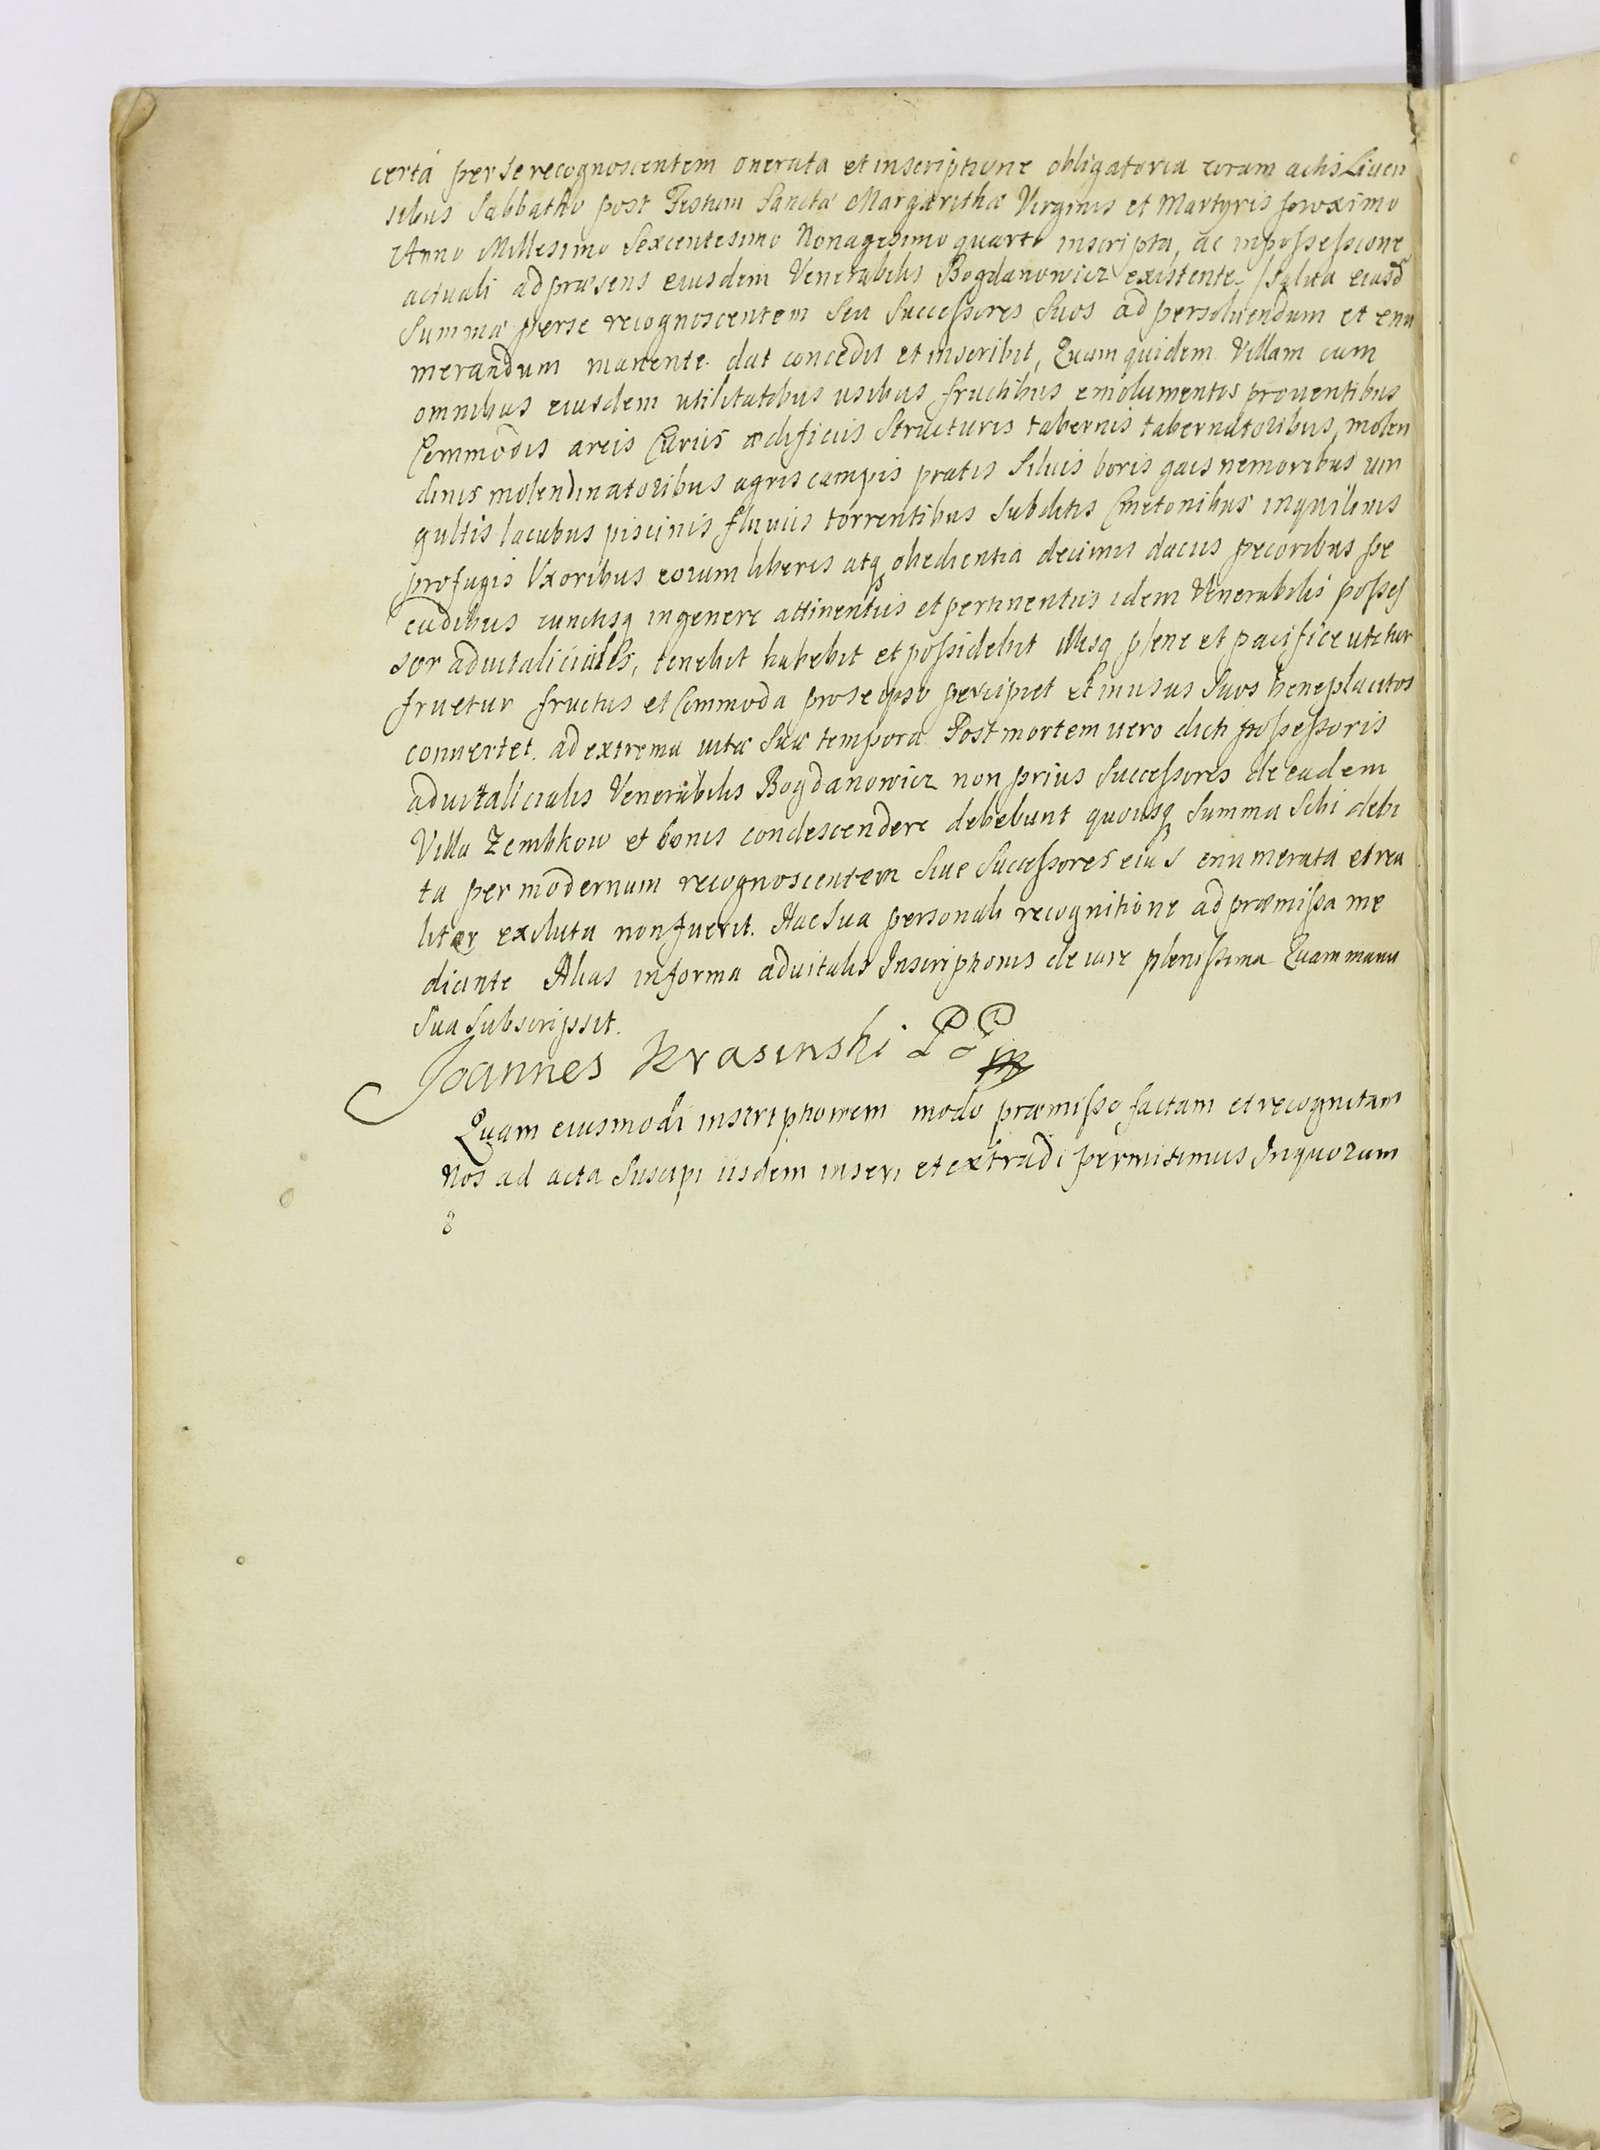 certá per se recognoscentem onerata et inscriptione obligatoria coram actis Liven
sibus Sabbatho post Festum Sanctæ Margarithæ Virginis et Martyris proximo
Anno Millesimo Sexcentesimo Nonagesimo quarto inscripta, ac in possessione
actuali ad præsens eiusdem Venerabilis Bogdanowicz existente, salua eiusd
Summæ per se recognoscentem Seu Successores Suos ad persoluendum et enu
merandum manente dat concedit et inscribit, Quam quidem Villam cum
omnibus eiusdem utilitatibus usibus fructibus emolumentis prouentibus
Commodis areis Curiis ædificiis Structuris tabernis tabernatoribus, molen
dinis molendinatoribus agris campis pratis Siluis boris gais nemoribus uir
gultis lacubus piscinis fluuiis torrentibus Subditis Cmetonibus inquilinis
profugis Uxoribus eorum liberis atq obedientia decimis daciis pecoribus pe
cudibus cunctisq in genere attinentiis et pertinentiis idem Venerabilis posses
sor aduitalicialis, tenebit habebit et possidebit illisq plene et pacifice utetur
fruetur fructus et Commoda pro se ipso percipiet et in usus Suos beneplacitos
conuertet. ad extrema uitæ Suæ tempora. Post mortem uero dicti possessoris
aduitalicialis Venerabilis Bogdanowicz non prius Successores de eadem
Villa Zembkow et bonis condescendere debebunt quousq Summa Sibi debi
ta per modernum recognoscentem Siue Successores eius enumerata et rea
liter exoluta non fuerit. Hac Sua personali recognitione ad præmissa me
diante Alias in forma aduitalis Inscriptionis de iure plenissima Quam manu
Sua Subscripsit.
Joannes Krasinski
Quam eiusmodi inscriptionem modo præmisso factam et recognitam
Nos ad acta Suscipi iisdem inseri et extradi permisimus In quorum